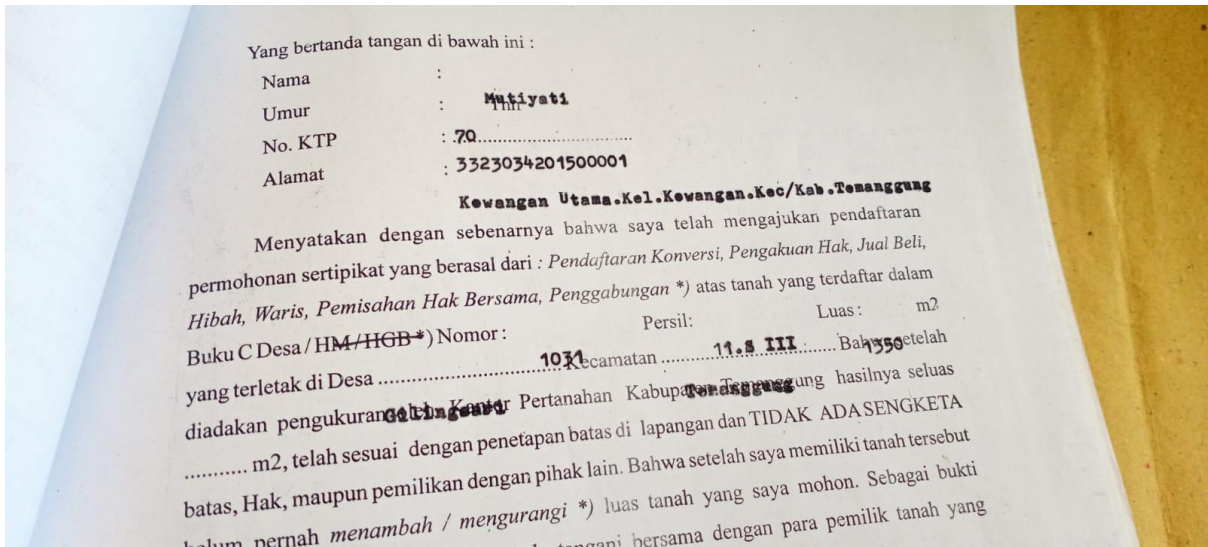 Yang bertanda tangan di bawah ini :
Nama :
Umur : Mutiyati
No. KTP : 70
Alamat : 3323034201500001
Kowangan Utama.Kel.Kowangan.Kec/Kab.Temanggung
Menyatakan dengan sebenarnya bahwa saya telah mengajukan pendaftaran
permohonan sertipikat yang berasal dari : Pendaftaran Konversi, Pengakuan Hak, Jual Beli,
Hibah, Waris, Pemisahan Hak Bersama, Penggabungan *) atas tanah yang terdaftar dalam
Buku C Desa / HM / HGB *) Nomor : Persil: Luas : m2
yang terletak di Desa ........ 1031 Kecamatan ........ 11.S III ........ Bahwa setelah 1350
diadakan pengukuran oleh Kantor Pertanahan Kabupaten Temanggung hasilnya seluas
Temanggung
........... m2, telah sesuai dengan penetapan batas di lapangan dan TIDAK ADA SENGKETA
batas, Hak, maupun pemilikan dengan pihak lain. Bahwa setelah saya memiliki tanah tersebut
belum pernah menambah / mengurangi *) luas tanah yang saya mohon. Sebagai bukti
bersama dengan para pemilik tanah yang